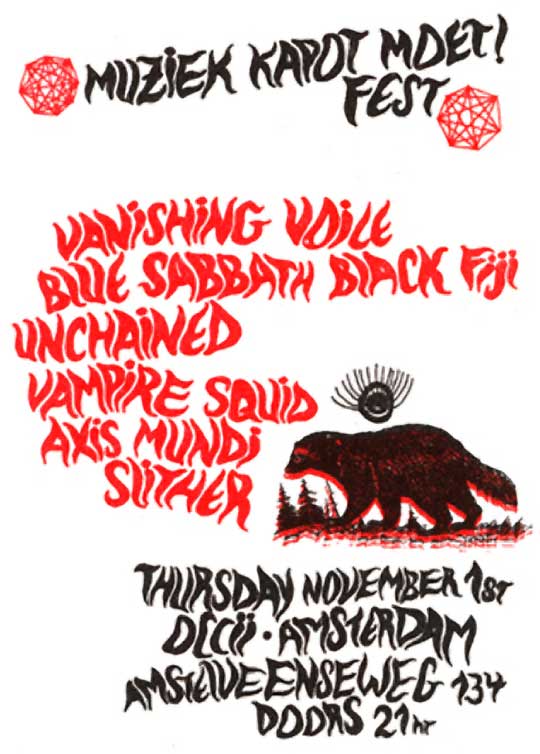 MUZIEK KAPOT MOET!
FEST
VANISHING VOICE
BLUE SABBATH BLACK FIJI
UNCHAINED
VAMPIRE SQUID
AXIS MUNDI
SLITHER
THURSDAY NOVEMBER 1ST
OCCII · AMSTERDAM
AMSTELVEENSEWEG 134
DOORS 21hr